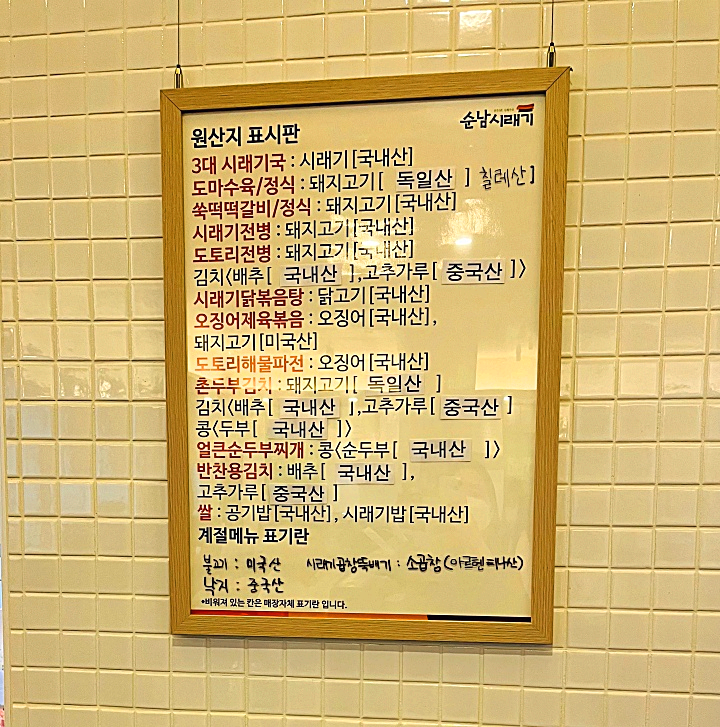 순남시래기
원산지 표시판
3대 시래기국 : 시래기[국내산]
도마수육/정식 : 돼지고기[ 독일산 ] 칠레산]
쑥떡떡갈비/정식 : 돼지고기[국내산]
시래기전병 : 돼지고기[국내산]
도토리전병 : 돼지고기[국내산]
김치〈배추[ 국내산 ],고추가루[ 중국산 ]〉
시래기닭볶음탕 : 닭고기[국내산]
오징어제육볶음 : 오징어[국내산],
돼지고기[미국산]
도토리해물파전 : 오징어[국내산]
촌두부김치 : 돼지고기[ 독일산 ]
김치〈배추[ 국내산 ],고추가루[ 중국산 ]
콩〈두부[ 국내산 ]〉
얼큰순두부찌개 : 콩〈순두부[ 국내산 ]〉
반찬용김치 : 배추[ 국내산 ],
고추가루[ 중국산 ]
쌀 : 공기밥[국내산], 시래기밥[국내산]
계절메뉴 표기란
불고기 : 미국산 시래기곱창뚝배기 : 소곱창(아르헨티나산)
낙지 : 중국산
*비워져 있는 칸은 매장자체 표기란 입니다.